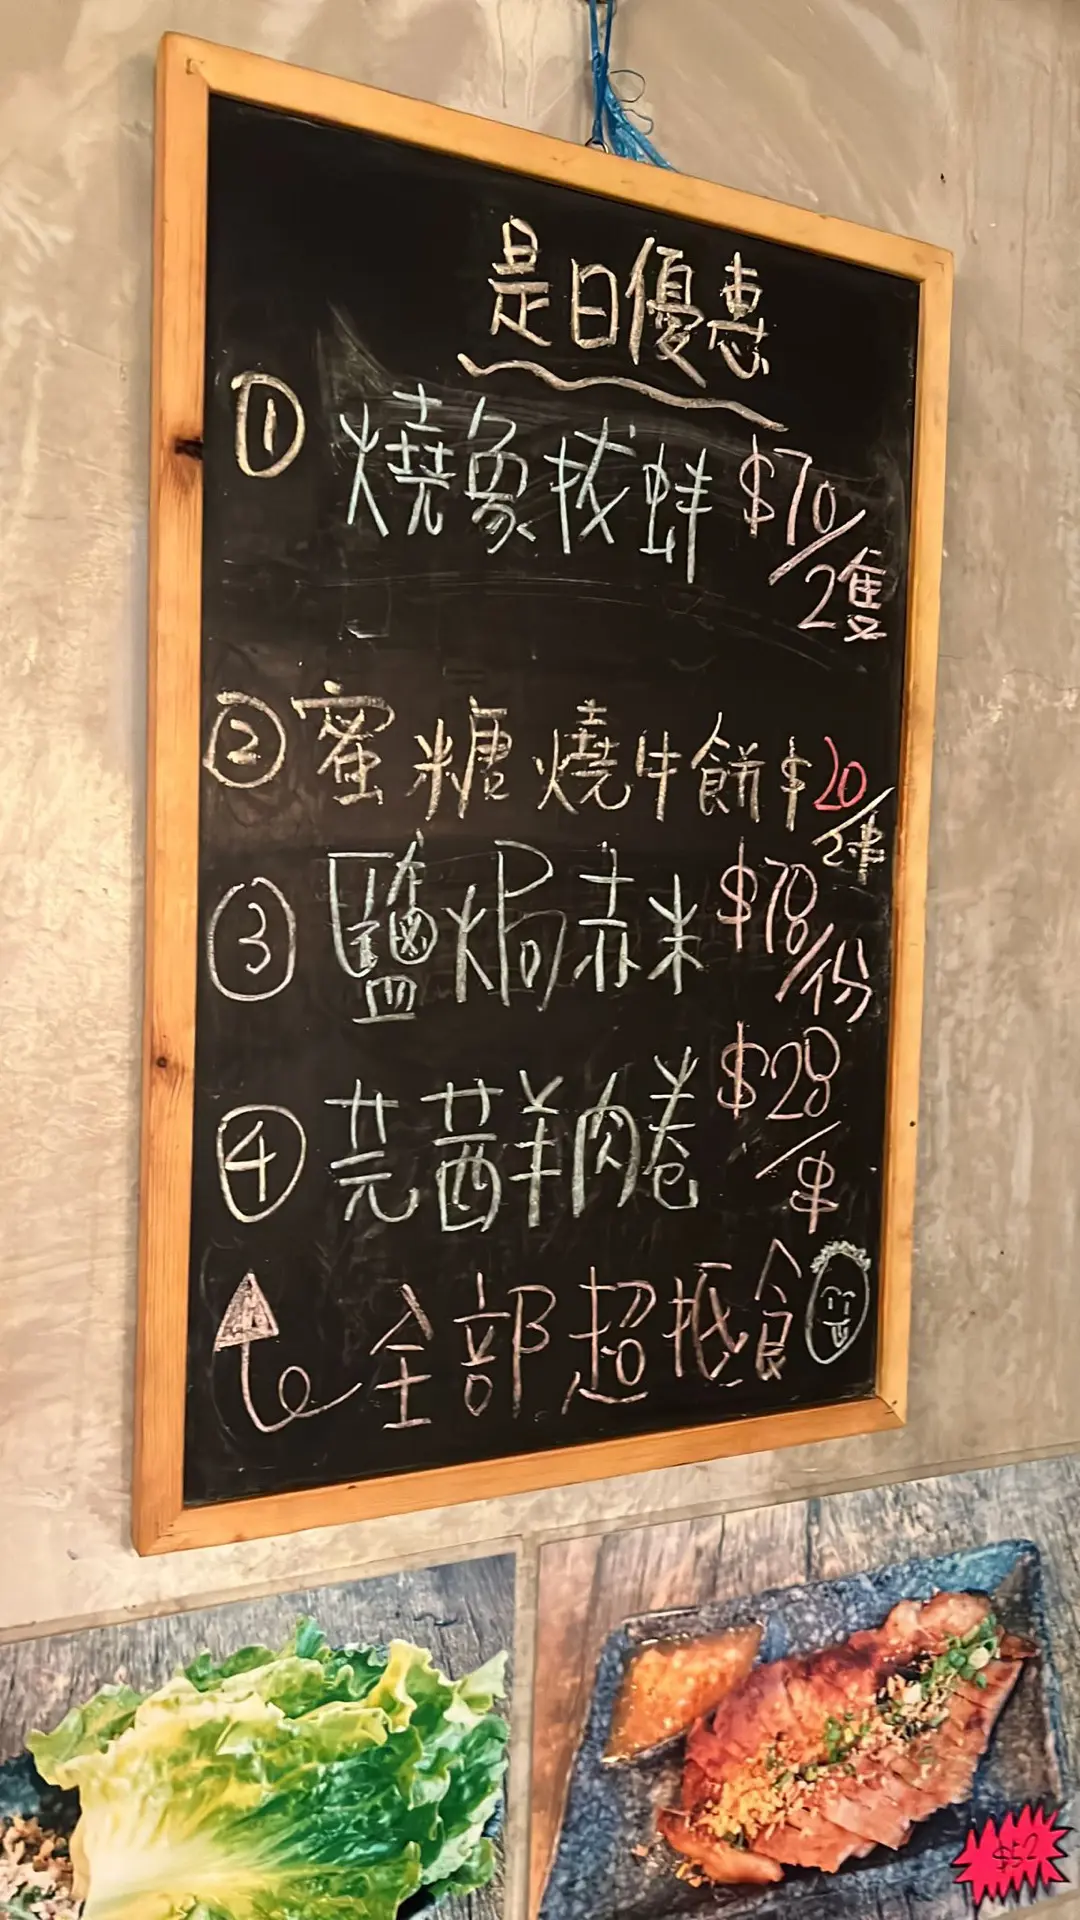 是日優惠
① 燒象拔蚌 $70/2隻
② 蜜糖燒牛餅 $20/2串
③ 鹽焗赤米 $78/份
④ 芫茜羊肉卷 $28/串
全部超抵食
$52